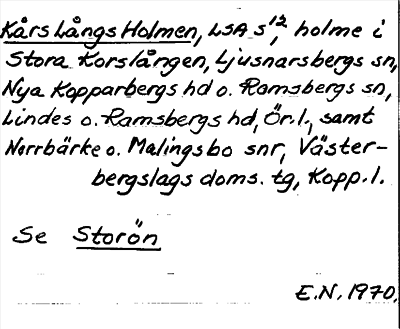 KårsLångsHolmen, LSA S¹², holme i
Stora Korslången, Ljusnarsbergs sn,
Nya Kopparbergs hd o. Ramsbergs sn,
Lindes o. Ramsbergs hd, Ör.l., samt
Norrbärke o. Malingsbo snr, Väster-
bergslags doms. tg, Kopp.l.
Se Storön
E.N. 1970.